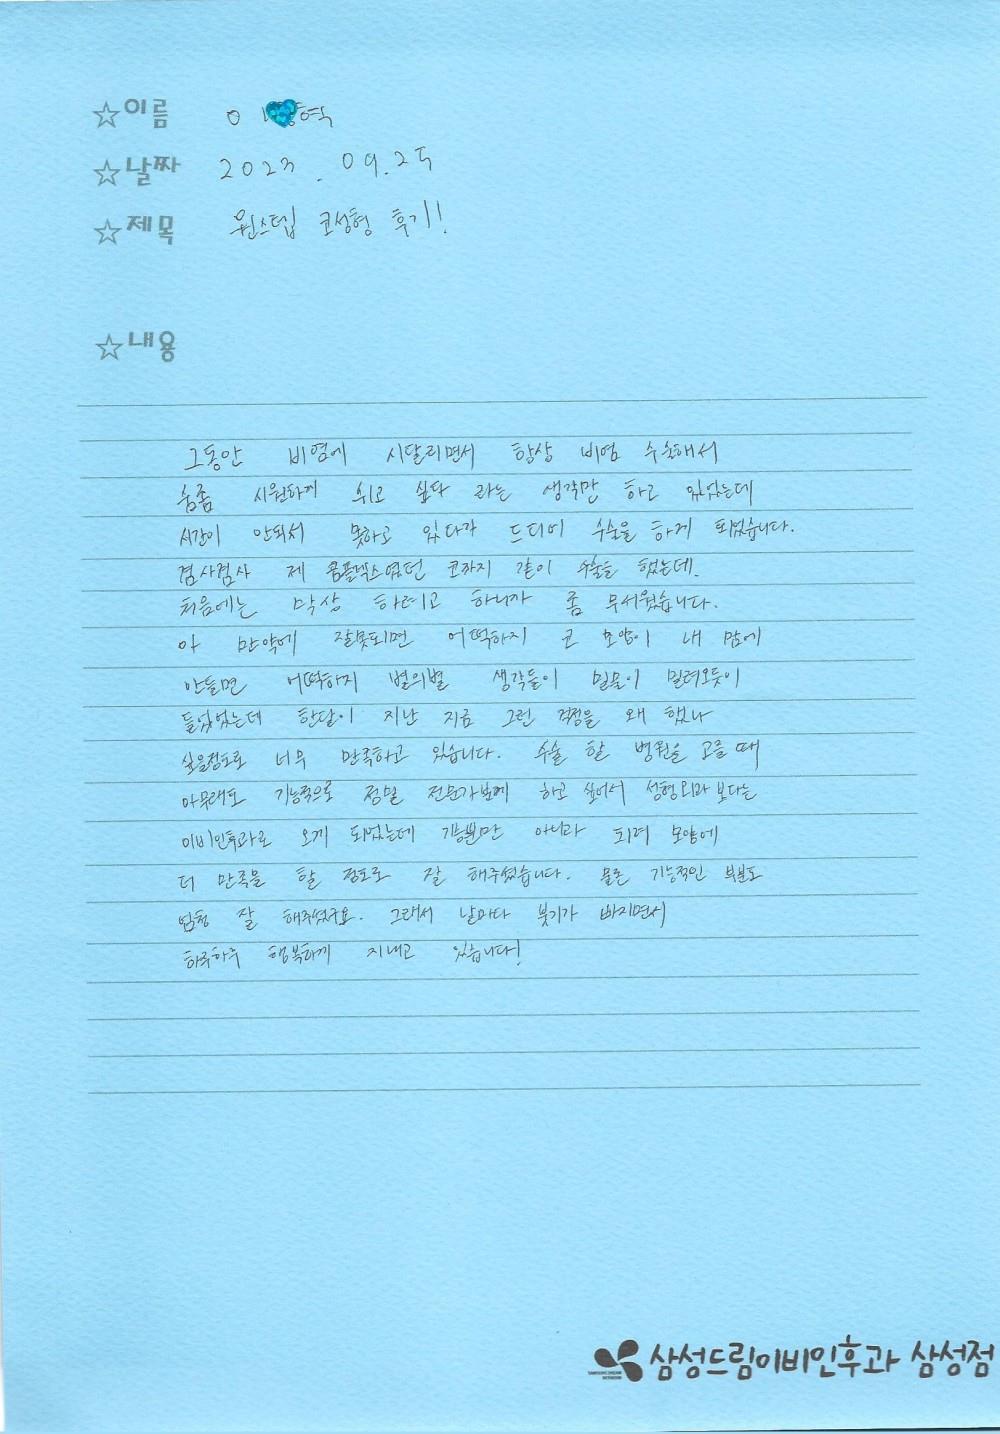 ☆이름 이
☆날짜 2023. 09.25
☆제목 원스텝 코성형 후기!
☆내용
그동안 비염에 시달리면서 항상 비염 수술해서
숨좀 시원하게 쉬고 싶다 라는 생각만 하고 있었는데
시간이 안되서 못하고 있다가 드디어 수술을 하게 되었습니다.
겸사겸사 제 콤플렉스였던 코까지 같이 수술을 했는데.
처음에는 막상 하려고 하니까 좀 무서웠습니다.
아 만약에 잘못되면 어떡하지 코 모양이 내 맘에
안들면 어떡하지 별의별 생각들이 밀물이 밀려오듯이
들었었는데 한달이 지난 지금 그런 걱정을 왜 했나
싶을정도로 너무 만족하고 있습니다. 수술 할 병원을 고를 때
아무래도 기능적으로 정밀 전문가분께 하고 싶어서 성형외과 보다는
이비인후과로 오게 되었는데 기능뿐만 아니라 되려 모양에
더 만족을 할 정도로 잘 해주셨습니다. 물론 기능적인 부분도
엄청 잘 해주셨구요. 그래서 날마다 붓기가 빠지면서
하루하루 행복하게 지내고 있습니다!
삼성드림이비인후과 삼성점